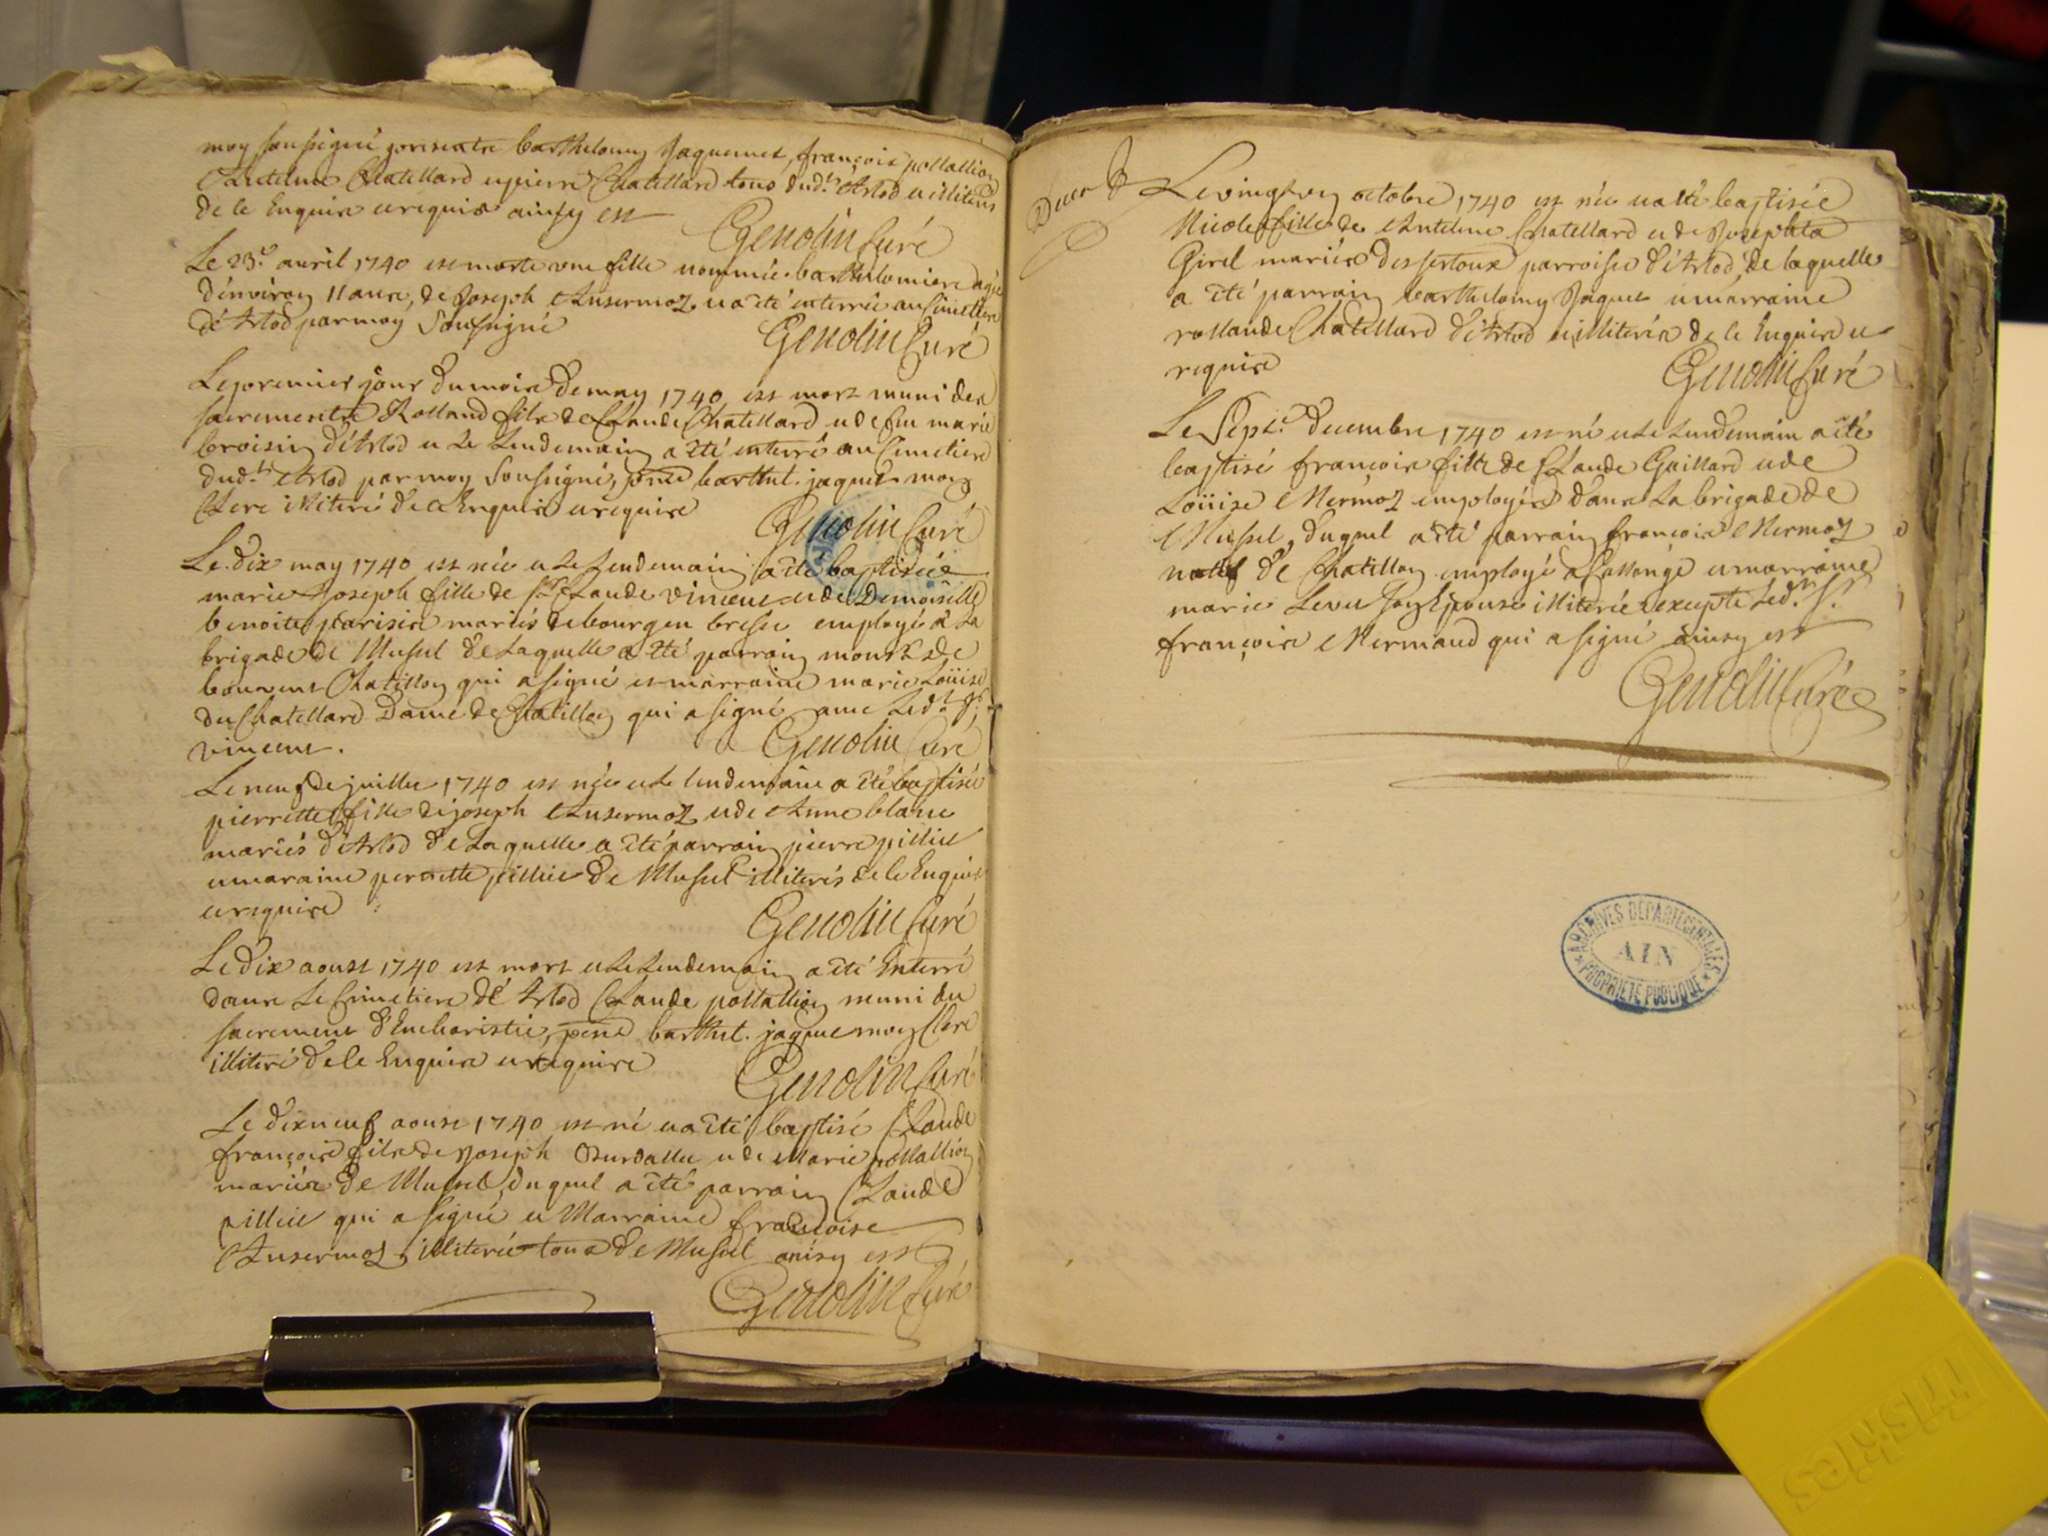 moy soussigné presents barthelemy Jaquemet, françois pollallion
Antelme Chatellard et pierre Chatellard tous dud.t Arlod et illiterés
de ce Enquis et requis ainsy est
Genolin Curé
Le 23.e avril 1740 est morte une fille nommée barthelomiere agée
d'environ 11 ans, de Joseph Ansermoz et a été enterrée au Cimettiere
d'Arlod par moy Soussigné
Genolin Curé
Le premier jour du mois de may 1740 est mort muni des
sacrements Rolland fils de Claude Chatellard et de feu marie
broisin d'Arlod et Le Lendemain a été enterré au Cimetiere
dud.t Arlod par moy Soussigné, barthel. jaquet mon
Clerc illiteré de ce Enquis et requis
Genolin Curé
Le dix may 1740 est née et Le Lendemain a été baptisée
marie Joseph fille de Sr Claude vincent et de Demoiselle
benoite parisis mariés de bourg en bresse employé à La
brigade de Mussel de Laquelle a été parrain mons.r de
bouvens Chatillon qui a signé et marraine marie Loüise
du Chatellard Dame de Chatillon qui a signé avec Led.t Sr
vincent.
Genolin Curé
Le neuf de juillet 1740 est née et Le lendemain a été baptisée
pierrette fille de joseph Ansermoz et de Anne blanc
mariés d'Arlod de Laquelle a été parrain pierre pilliet
et maraine pernette pilliet de Mussel illiterés de ce Enquis
et requis
Genolin Curé
Le dix aoust 1740 est mort et Le Lendemain a été Enterré
dans Le Cimetiere d'Arlod Claude pollallion muni du
sacrement d'Eucharistie, barthel. jaquet mon Clerc
illiteré de ce Enquis et requis
Genolin Curé
Le dixneuf aoust 1740 est né et a été baptisé Claude
françois fils de Joseph Burdallet et de Marie pollallion
mariés de Mussel, duquel a été parrain Claude
pilliet qui a signé et Marraine françoise
Ansermoz illiterée tous de Mussel ainsy est
Genolin Curé
Le vingt octobre 1740 est née et a été baptisée
Nicole fille de Antelme Chatellard et de Josephta
Girel mariés des sertoux parroisse d'Arlod, de laquelle
a été parrain barthelemy Jaquet et marraine
rollande Chatellard d'Arlod illiterés de ce Enquis et
requis
Genolin Curé
Le Sept.e decembre 1740 est né et Le Lendemain a été
baptisé françois fils de Claude Gaillard et de
Loüise Mermoz employés dans La brigade de
Mussel, duquel a été parrain françois Mermoz
natif de Chatillon employé a Collonge et marraine
marie Levet son Epouse illiterée excepté Led.t Sr
françois Mermand qui a signé ainsy est
Genolin Curé
ARCHIVES DEPARTEMENTALES
AIN
PROPRIETE PUBLIQUE
Friskies